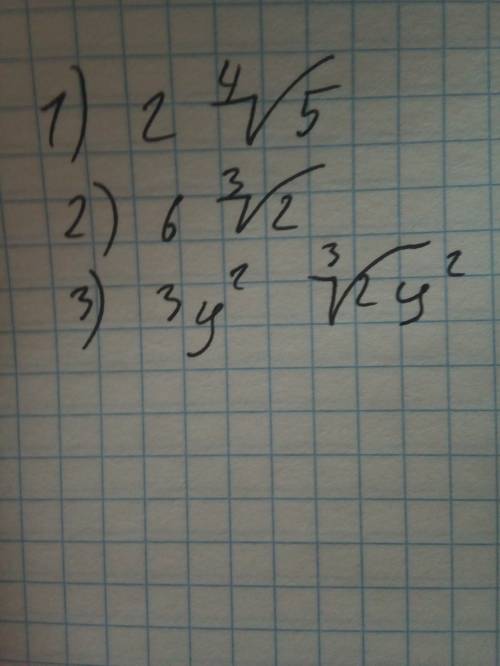 1) 2 ∜5
2) 6 ∛2
3) 3y² ∛2y²